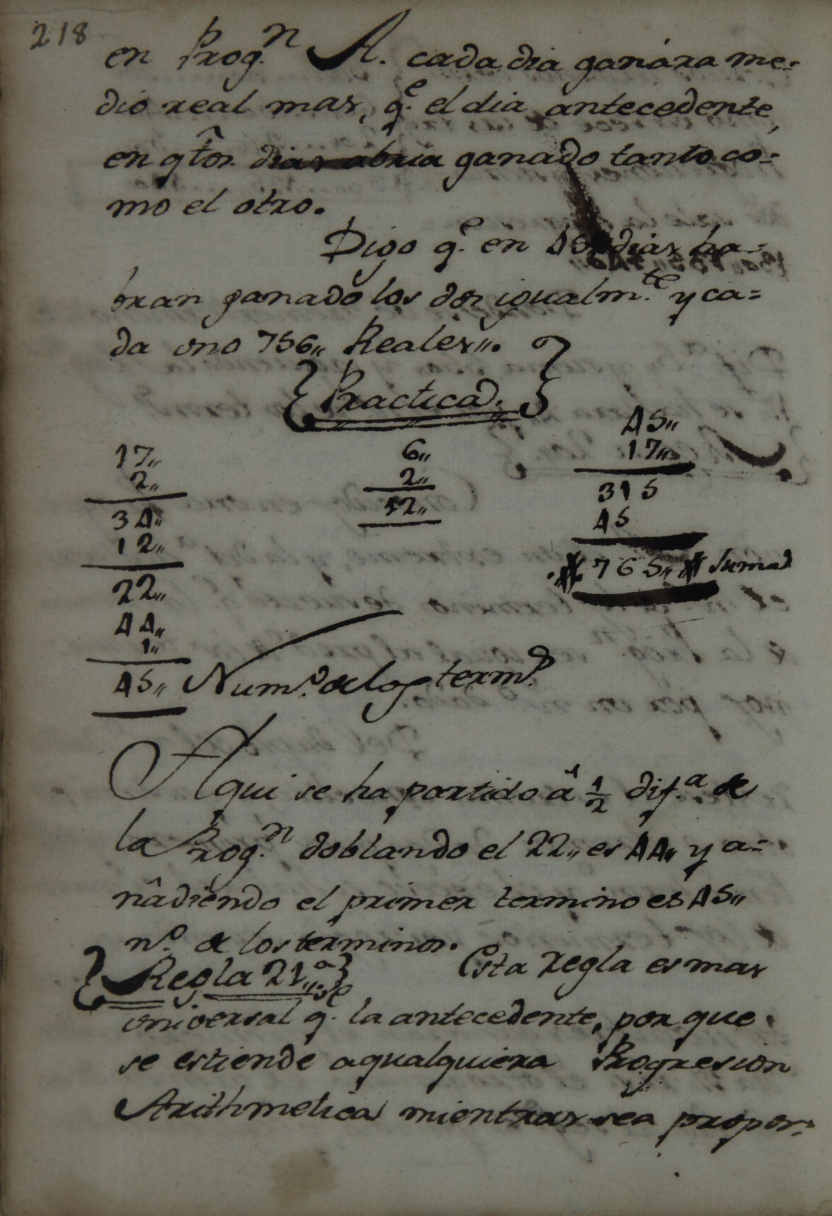 218
en Prog.n A. cada dia ganára me-
dio real mas, q.e el dia antecedente,
en qtos. dias abria ganado tanto co-
mo el otro.
Digo q.e en 45 dias ha-
bran ganado los dos igualm.te y ca=
da uno 756,, Reales,,.
{Practica.}
17,,
2,,
34,,
12,,
22,,
44,,
1,,
45,, Num.o de los term.s
6,,
2,,
12,,
45,,
17,,
315
45
765,, Suma
Aqui se ha partido á 1/2 dif.a de
la Prog.n doblando el 22,, es 44,, y a=
ñadiendo el primer termino es 45,,
n.o de los terminos.
{Regla 21,,a} Esta regla es mas
universal q.e la antecedente, por que
se estiende aqualquiera Progresion
Arithmetica mientras sea propor-